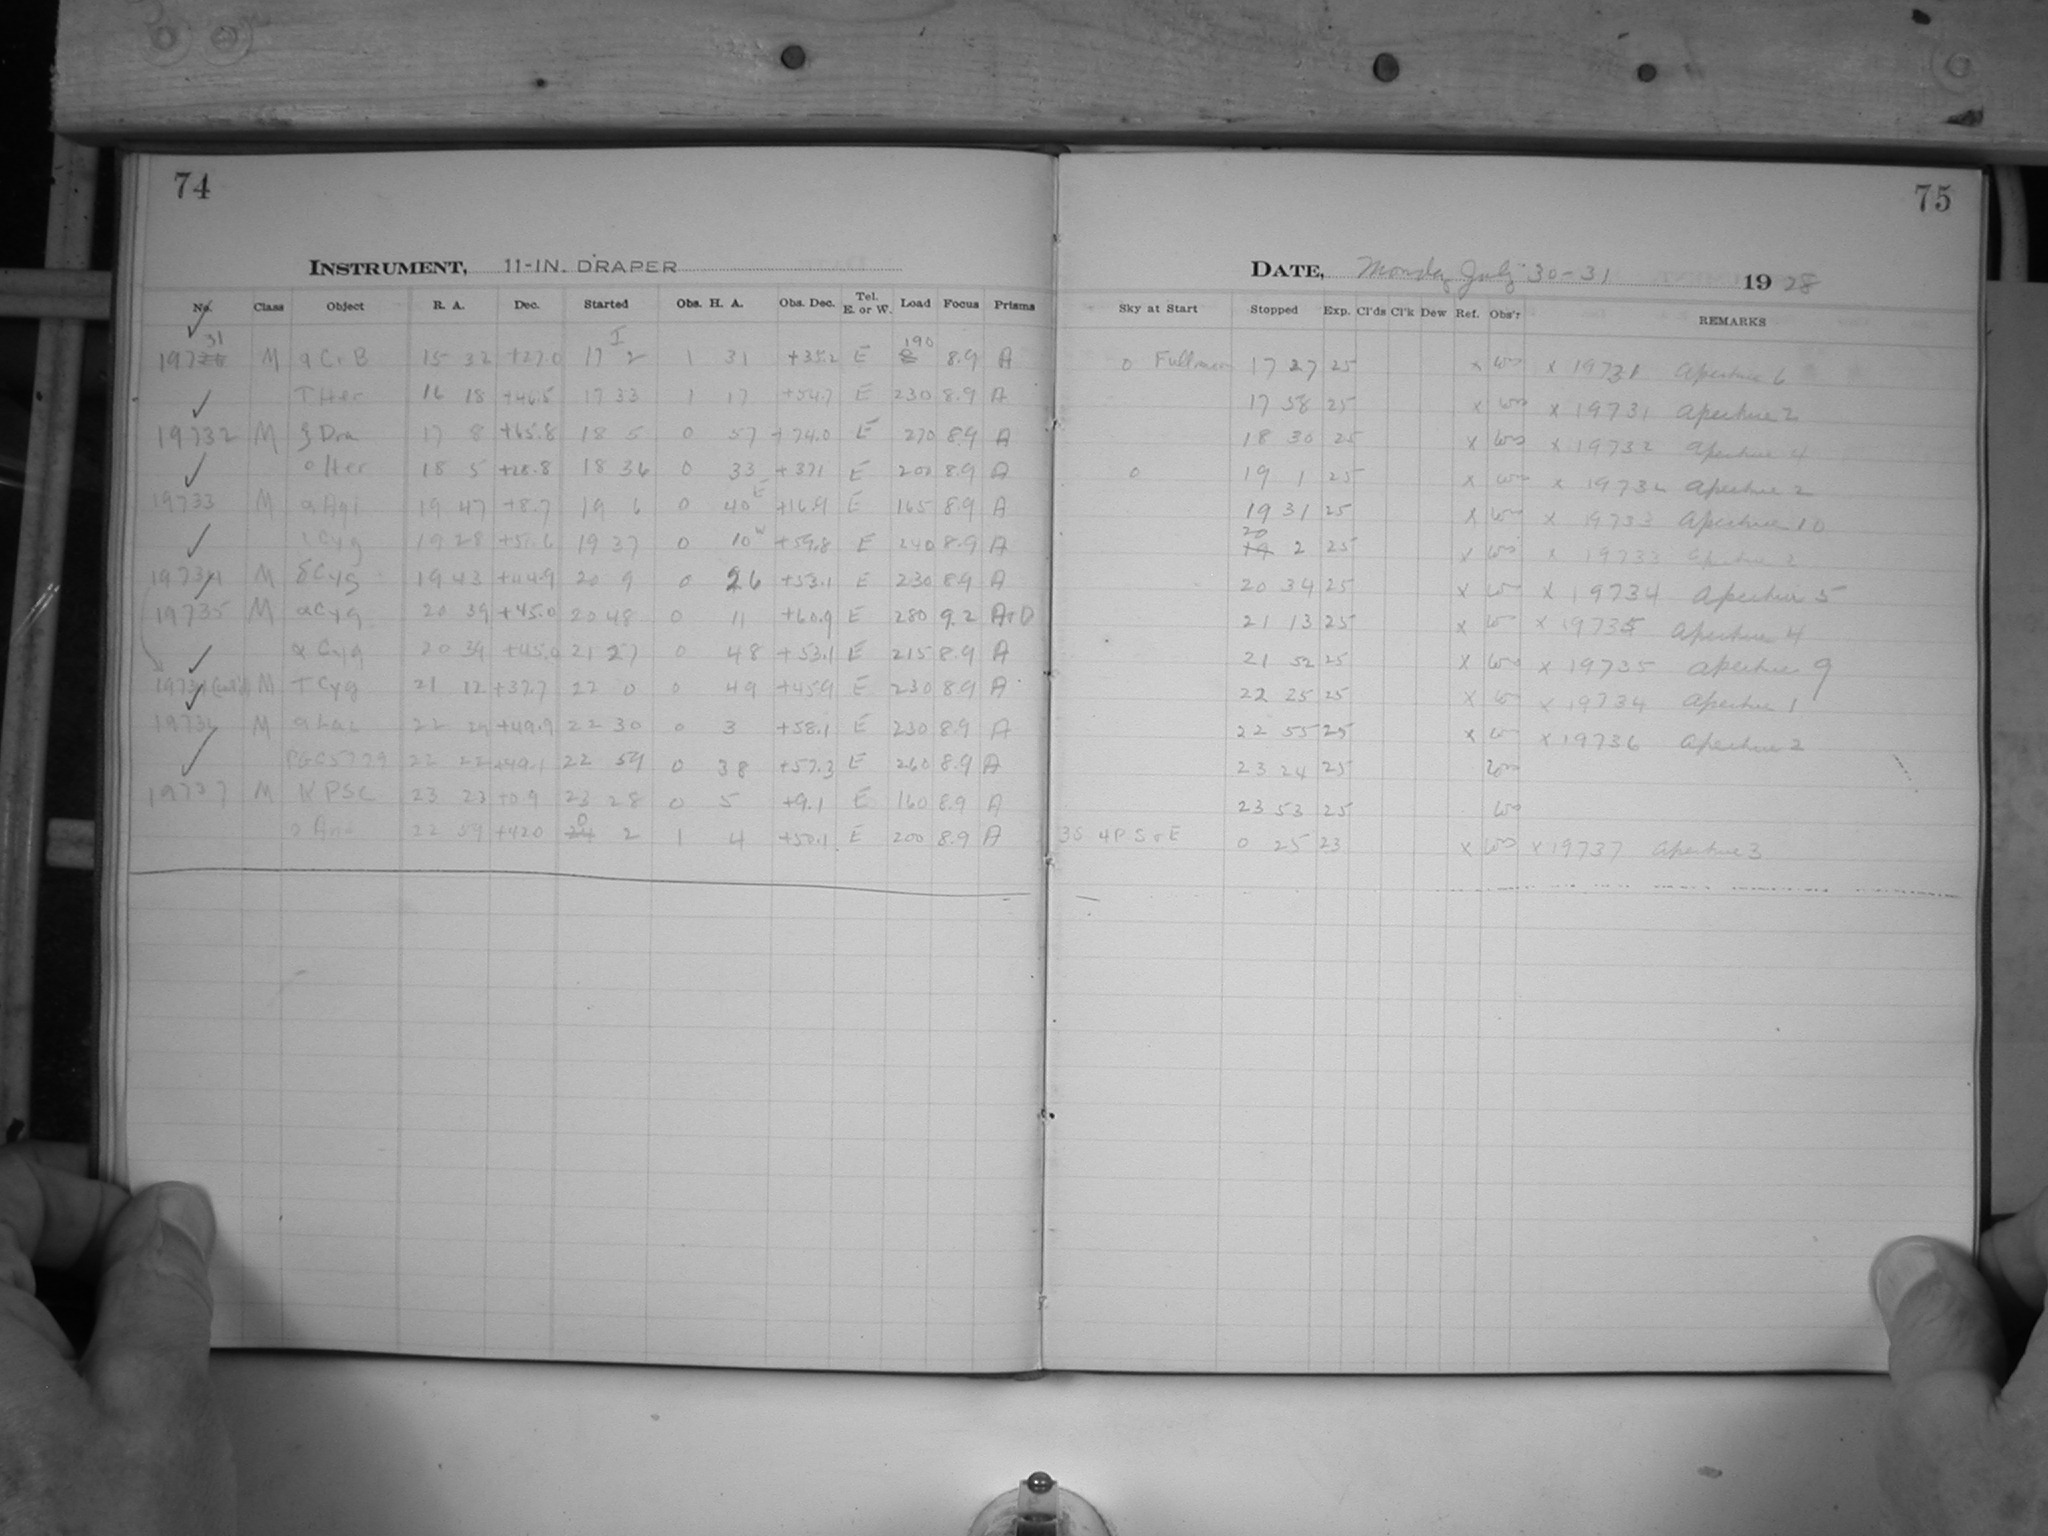 74
INSTRUMENT, 11-IN. DRAPER
No. Class Object R. A. Dec. Started Obs. H. A. Obs. Dec. Tel. E. or W. Load Focus Prisms
31 I 190
M α CrB 15 32 +27.0 17 2 1 31 +35.2 E 8.9 A
τ Her 16 18 +46.5 17 33 1 17 +54.7 E 230 8.9 A
19732 M ζ Dra 17 8 +65.8 18 5 0 57 +74.0 E 270 8.9 A
ο Her 18 5 +28.8 18 36 0 33 +37.1 E 200 8.9 A
19733 M α Aql 19 47 +8.7 19 6 0 40 E +16.9 E 165 8.9 A
ι Cyg 19 28 +51.6 19 37 0 10 W +59.8 E 240 8.9 A
19734 M δ Cyg 19 43 +44.9 20 9 0 26 +53.1 E 230 8.9 A
19735 M α Cyg 20 39 +45.0 20 48 0 11 +60.9 E 280 9.2 A+D
α Cyg 20 39 +45.0 21 27 0 48 +53.1 E 215 8.9 A
19734 M τ Cyg 21 12 +37.7 22 0 0 49 +45.9 E 230 8.9 A
19736 M α Lac 22 29 +49.9 22 30 0 3 +58.1 E 230 8.9 A
22 22 +49.1 22 59 0 38 +57.3 E 260 8.9 A
19737 M κ PSC 23 23 +0.9 23 28 0 5 +9.1 E 160 8.9 A
0
ο And 22 59 +42.0 24 2 1 4 +50.1 E 200 8.9 A
75
DATE, Monday July 30-31 1928
Sky at Start Stopped Exp. Cl'ds Cl'k Dew Ref. Obs'r REMARKS
0 Full moon 17 27 25 x x 19731 Aperture 6
17 58 25 x x 19731 Aperture 2
18 30 25 x x 19732 Aperture 4
0 19 1 25 x x 19732 Aperture 2
19 31 25 x x 19733 Aperture 10
20
19 2 25 x x 19733 Aperture 2
20 34 25 x x 19734 Aperture 5
21 13 25 x x 19735 Aperture 4
21 52 25 x x 19735 Aperture 9
22 25 25 x x 19734 Aperture 1
22 55 25 x x 19736 Aperture 2
23 24 25
23 53 25
3S 4P S+E 0 25 23 x x 19737 Aperture 3